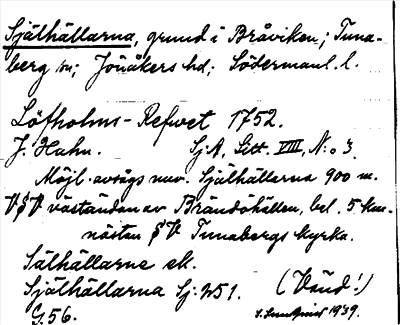 Själhällarna, grund i Bråviken; Tuna-
berg sn; Jönåkers hd; Södermanl. l.
Löfholms-Refwet 1752.
J. Hahn. Sj.A, Litt. VIII, N:o 3
Möjl. avsågs nuv. Själhällarna 900 m.
V§V väständan av Brändöhällen, bel. 5 km.
nästan §V Tunabergs kyrka.
Sälhällarne ek.
Själhällarna Sj: 251. (Vänd!)
G. 56. 1939.